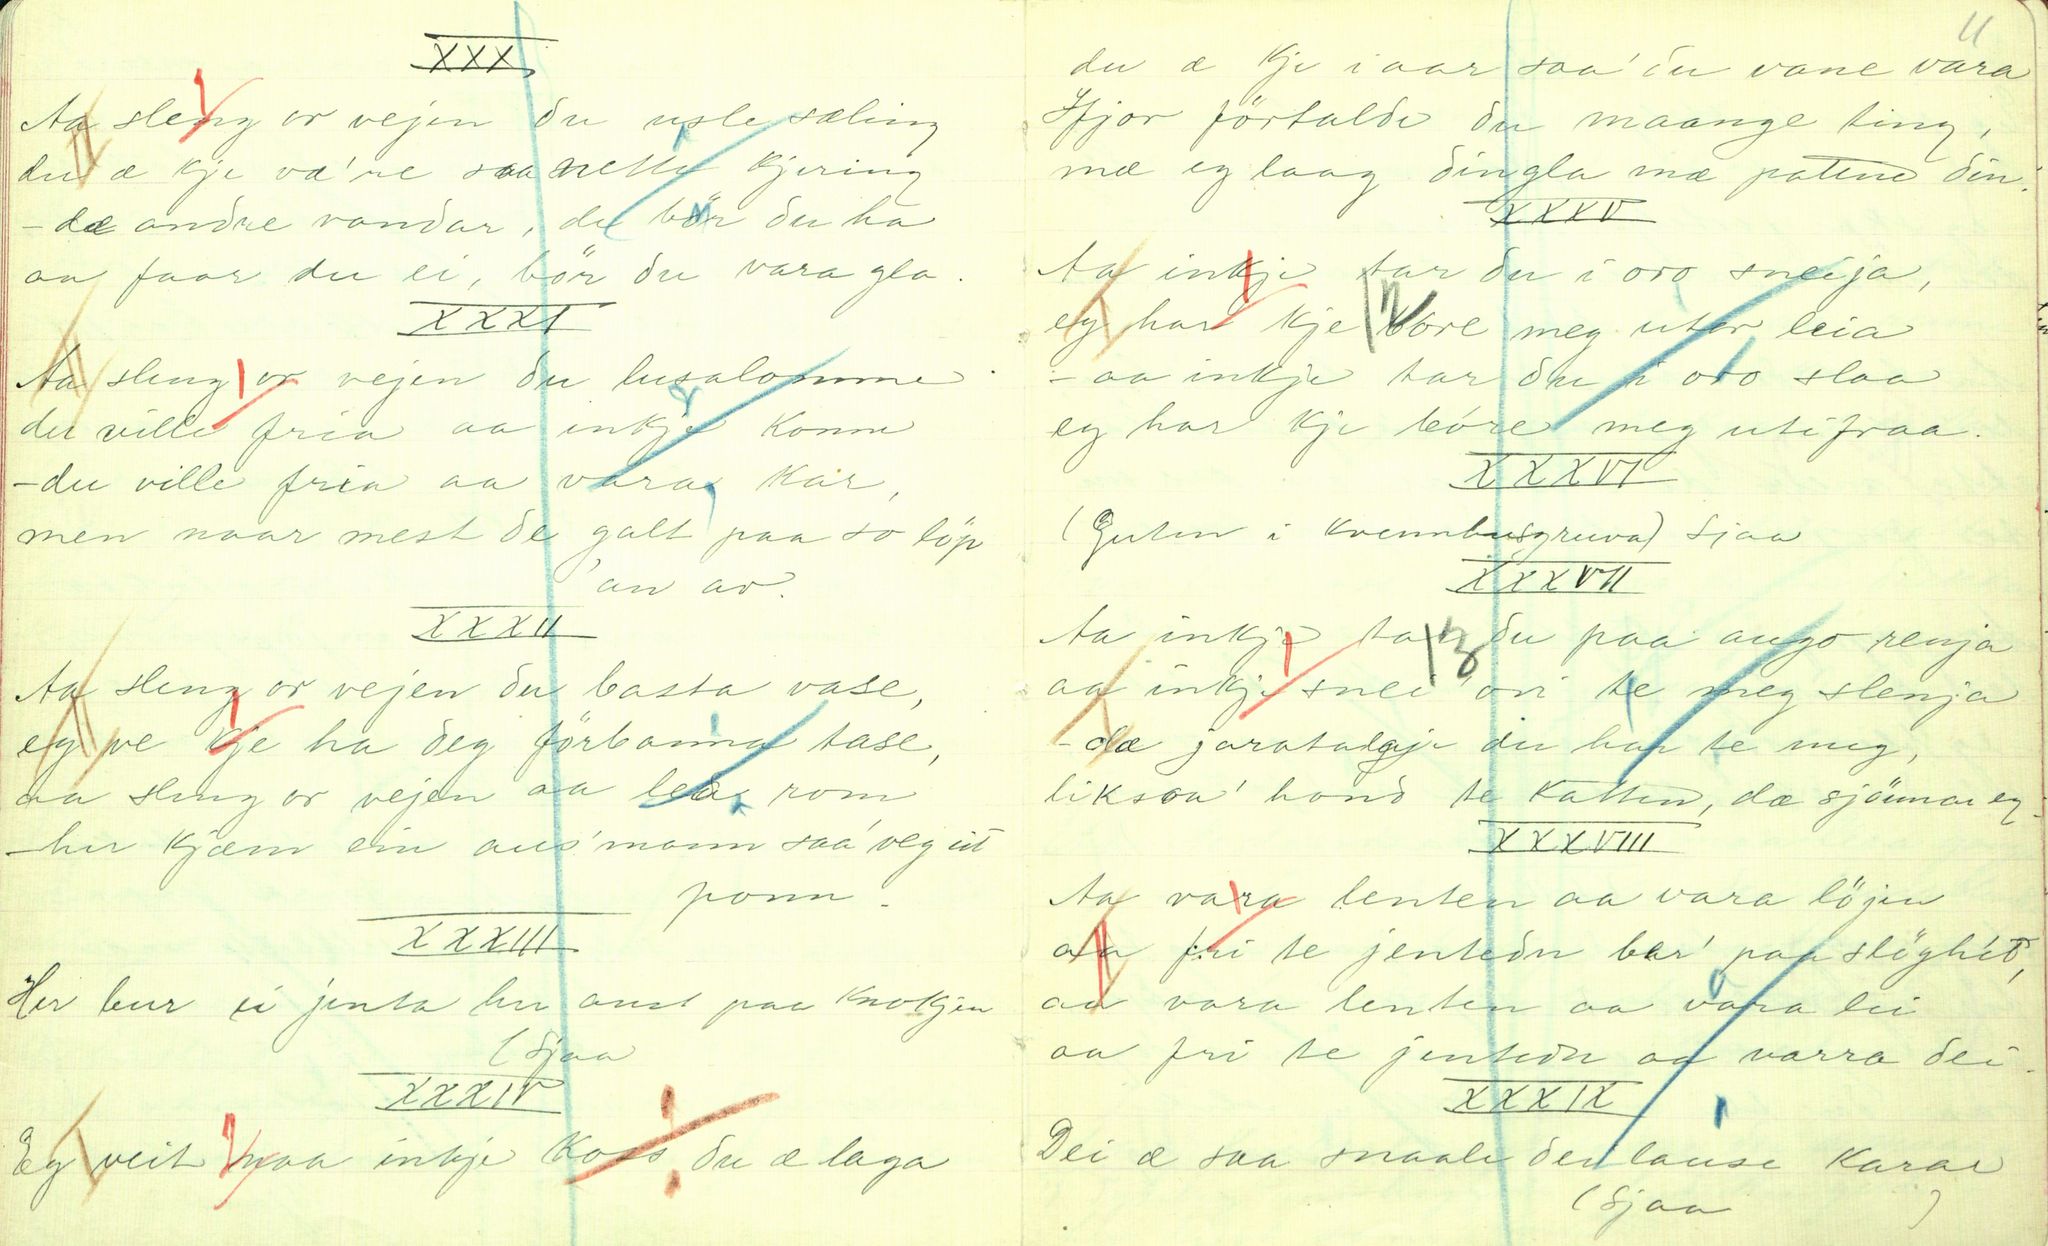 XXX
Aa sleng or vejen du usle sæling
du æ kje væ're saa nette kjering
- dæ andre vandar, de bör du ha
aa faar du ei, bör du vara gla.
XXXI
Aa sleng or vejen du lusalomme
du ville fria aa inkje komme
- du ville fria aa vara kar,
men naar mest de galt paa so löp
'an av.
XXXII
Aa sleng or vejen du basta vase,
eg ve kje ha deg förbanna tase,
aa sleng or vejen aa lea rom
- her kjæm ein aus'mann saa' veg ut
pomm.
XXXIII
Her bur ei jenta hu aust paa Knokjen
(Sjaa
XXXIV
Eg veit maa inkje koss du æ laga
11
du æ kje i aar saa' du vane vara
Ifjor förtalde du maange ting,
mæ eg laag dingla mæ patene din.
XXXV
Aa inkje tar du i oro sneija,
12
eg har kje bore meg utor leia
- aa inkje tar du i oro slaa
eg har kje bóre meg utifraa.
XXXVI
(Guten i kvennhusgruva) Sjaa
XXXVII
13
Aa inkje tar du paa augo renja
aa inkje snei' ori te meg slenja
- dæ jaratalgje du har te meg,
liksoa' hond te katten, dæ sjönnar eg.
XXXVIII
Aa vara lenten aa vara löjen
aa fri te jentedn bar' paa slöghet,
aa vara lenten aa vara lei
aa fri te jentedn aa varra dei.
XXXIX
Dei æ saa snaale dei lause karar
(Sjaa )